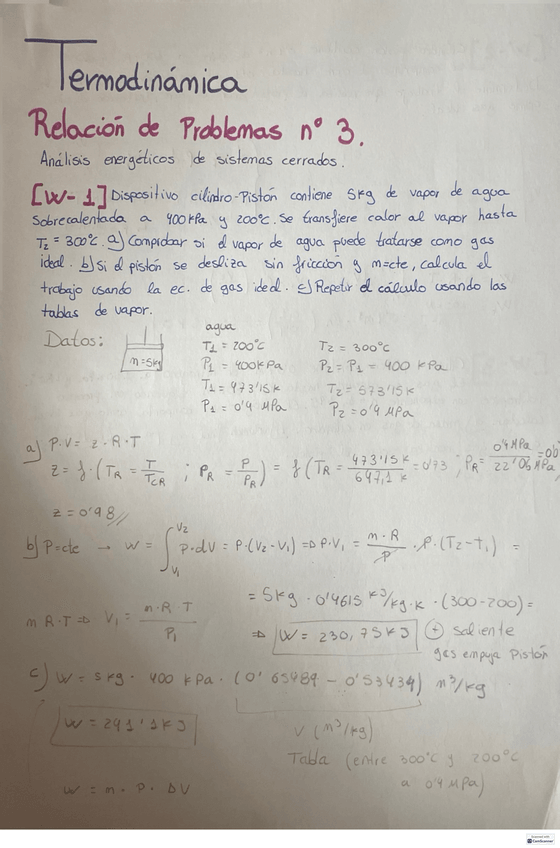 Termodinámica
Relación de Problemas nº 3.
Análisis energéticos de sistemas cerrados.
[W-1] Dispositivo cilindro-Pistón contiene 5kg de vapor de agua
sobrecalentada a 400kPa y 200°C. Se transfiere calor al vapor hasta
T2 = 300°C. a) Comprobar si el vapor de agua puede tratarse como gas
ideal. b) Si el pistón se desliza sin fricción y m=cte, calcula el
trabajo usando la ec. de gas ideal. c) Repetir el cálculo usando las
tablas de vapor.
Datos: m=5kg
agua
T1 = 200°C T2 = 300°C
P1 = 400kPa P2 = P1 = 400 kPa
T1 = 473'15K T2 = 573'15K
P1 = 0'4 MPa P2 = 0'4 MPa
a) P·V = z·R·T
z = f·(TR = T/TCR ; PR = P/PR) = f(TR = 473'15K/647,1 K = 0'73 ; PR = 0'4 MPa/22'06 MPa =
z = 0'98 //
b) P=cte → W = ∫V1V2 P·dV = P·(V2-V1) => P·V1 = m·R/P · P·(T2-T1) =
= 5kg · 0'4615 KJ/kg·K · (300-200) =
m R·T => V1 = m·R T/P1
=> W = 230,75KJ (+) saliente
gas empuja Pistón
c) W = 5 kg · 400 kPa · (0'65489 - 0'53434) m³/kg
W = 241'1KJ
V (m³/kg)
Tabla (entre 300°C y 200°C
a 0'4 MPa)
W = m · P · ΔV
CamScanner